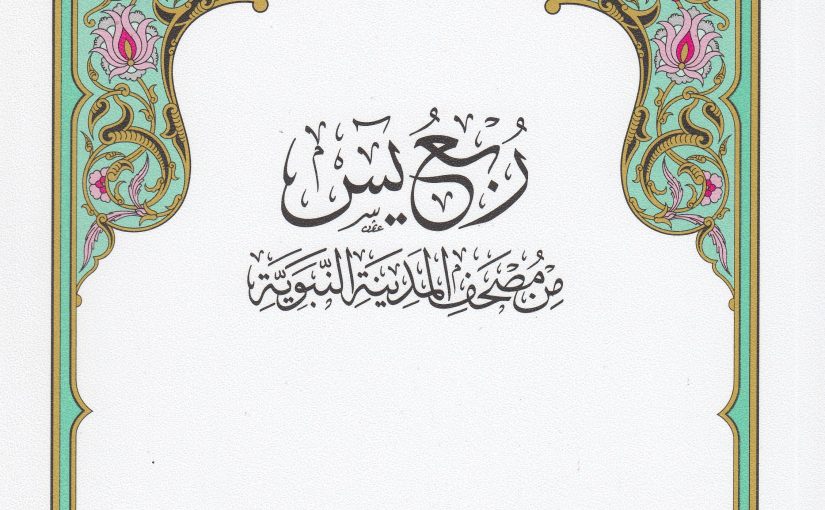 رُبْعُ يٓسٓ
مِن مُصْحَفِ المَدِينَةِ النَّبَوِيَّةِ